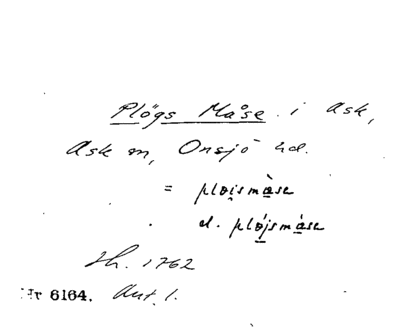 Plögs Måse i Ask,
Ask sn, Onsjö hd.
= pløi̯smàsɐ
d. pløjsmàsɐ
Sk. 1762
Nr 6164. Aut. 1.